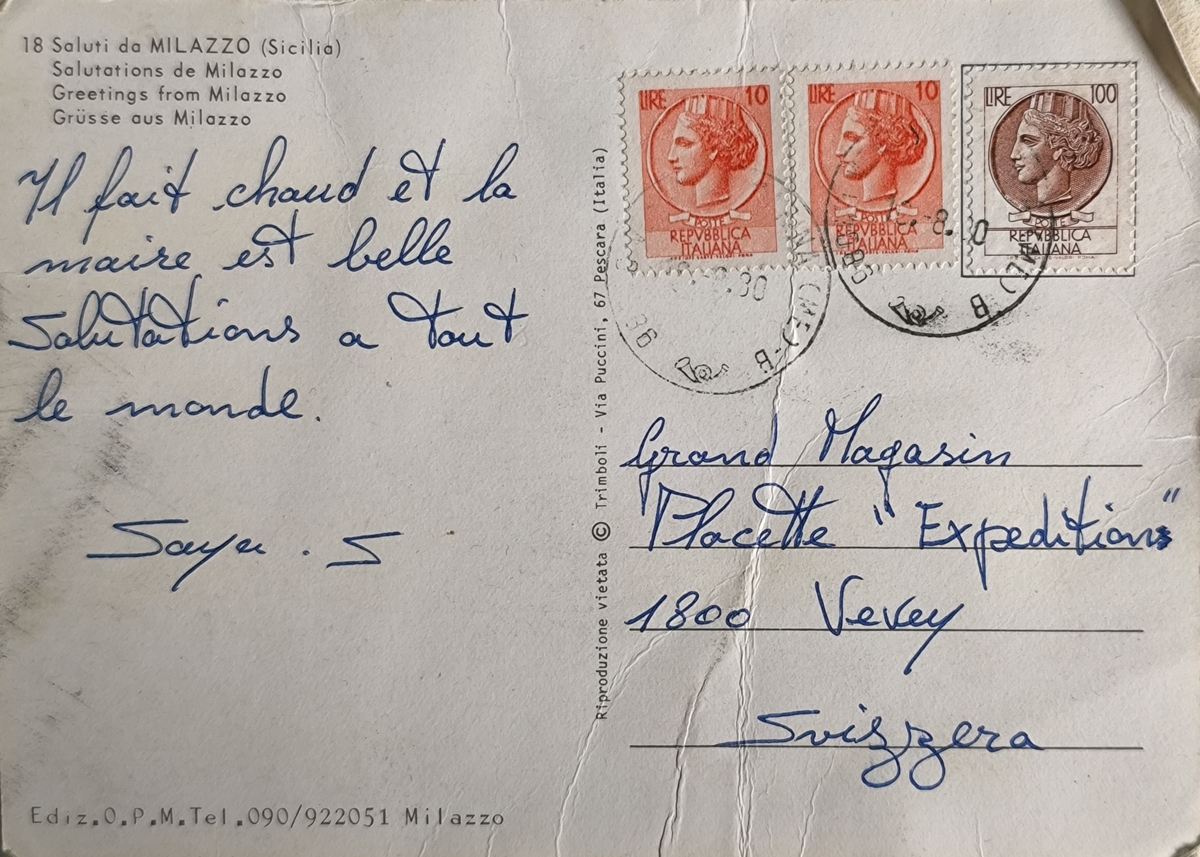 18 Saluti da MILAZZO (Sicilia)
Salutations de Milazzo
Greetings from Milazzo
Grüsse aus Milazzo
Il fait chaud et la
maire est belle
Salutations a tout
le monde.
S
Ediz.O.P.M.Tel.090/922051 Milazzo
Riproduzione vietata © Trimboli - Via Puccini, 67 Pescara (Italia)
LIRE 10
POSTE
REPVBBLICA
ITALIANA
LIRE 10
POSTE
REPVBBLICA
ITALIANA
LIRE 100
REPVBBLICA
ITALIANA
(ME)-B
Grand Magasin
"Placette" Expeditions"
1800 Vevey
Svizzera